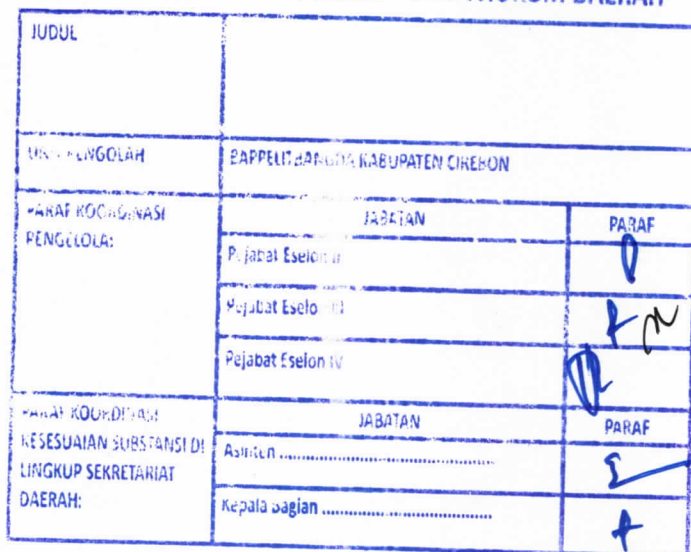 DAERAH
JUDUL
PENGOLAH
BAPPELITBANGDA KABUPATEN CIREBON
PARAF KOORDINASI
PENGELOLA:
JABATAN
PARAF
Pejabat Eselon II
Pejabat Eselon III
Pejabat Eselon IV
PARAF KOORDINASI
KESESUAIAN SUBSTANSI DI
LINGKUP SEKRETARIAT
DAERAH:
JABATAN
PARAF
Asisten ............................................
Kepala Bagian ....................................